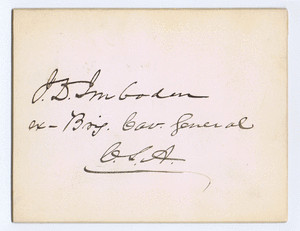 J. D. Imboden
ex-Brig. Cav. General
C. S. A.